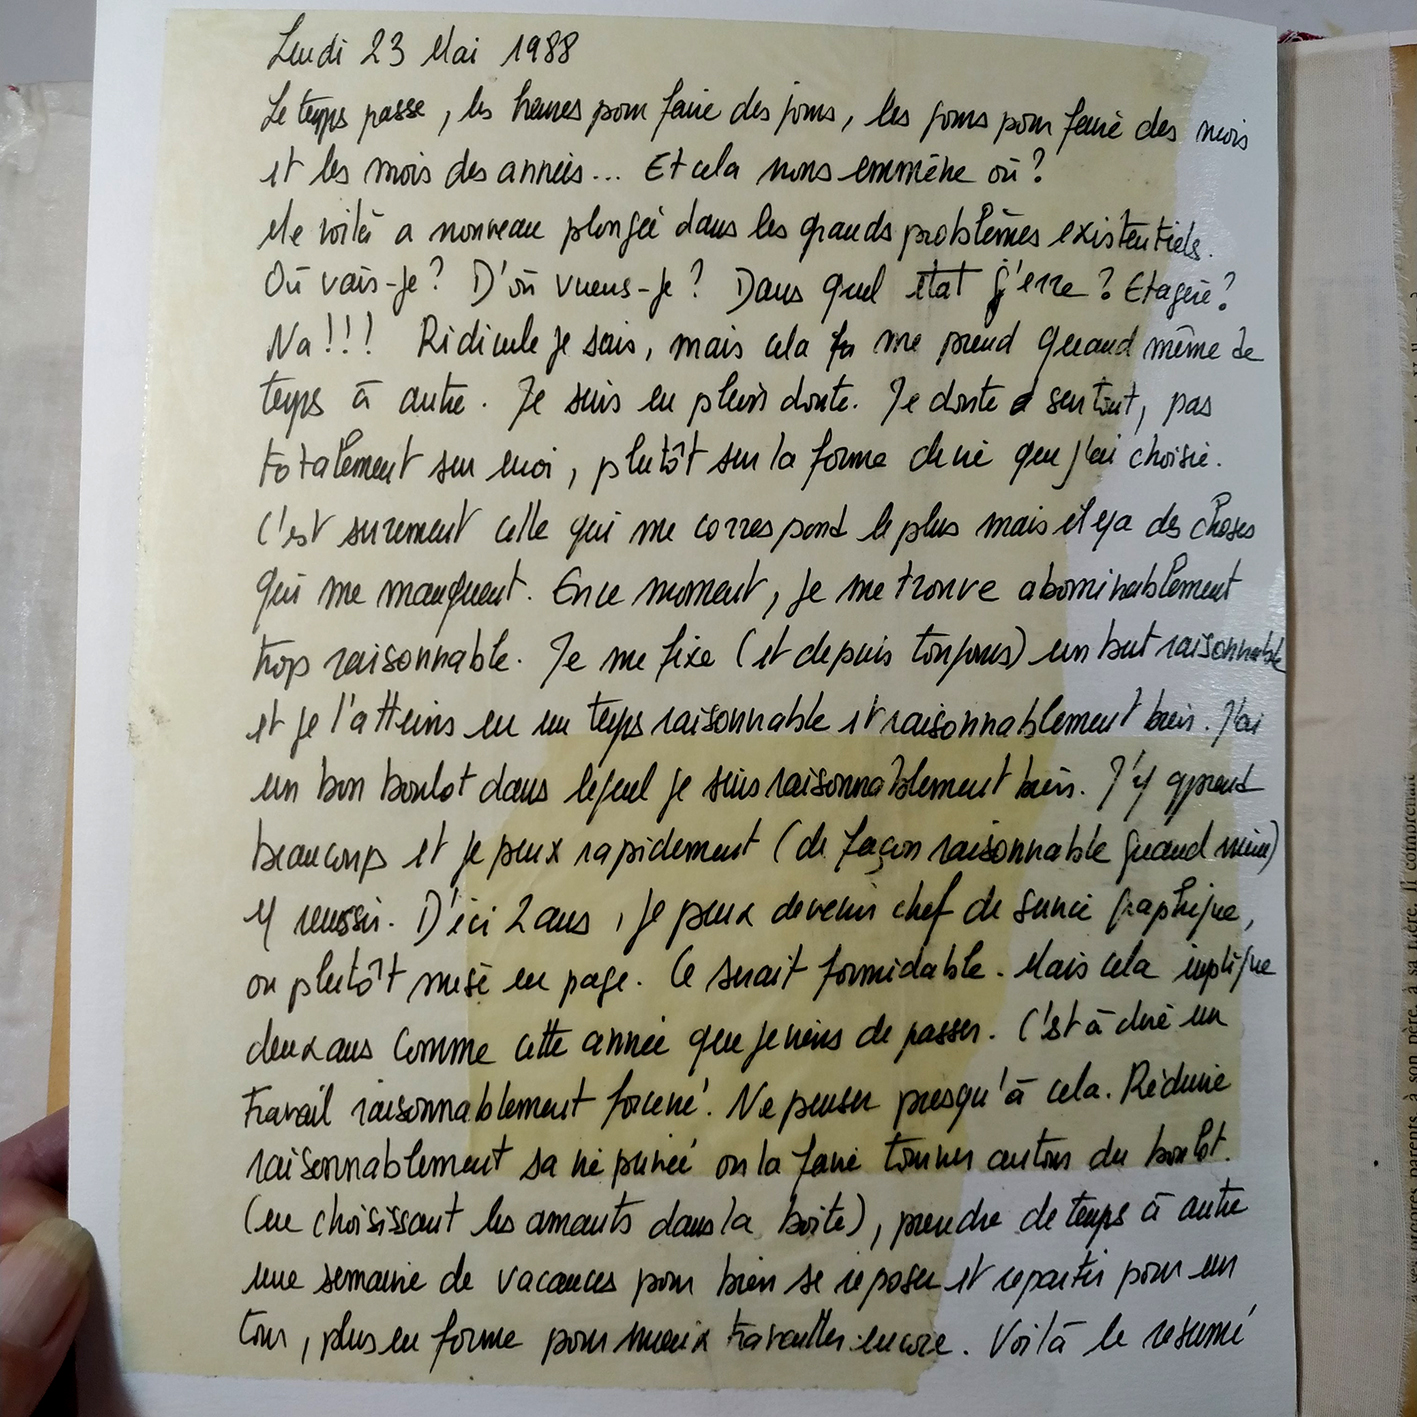 Lundi 23 Mai 1988
Le temps passe, les heures pour faire des jours, les jours pour faire des mois
et les mois des années... Et cela nous emmène où ?
Me voilà a nouveau plongée dans les grands problèmes existentiels.
Où vais-je ? D'où viens-je ? Dans quel état j'erre ? Etagère ?
Na !!! Ridicule je sais, mais cela me prend quand même de
temps à autre. Je suis en plein doute. Je doute sur tout, pas
totalement sur moi, plutôt sur la forme de vie que j'ai choisie.
C'est surement celle qui me correspond le plus mais il y a des choses
qui me manquent. En ce moment, je me trouve abominablement
trop raisonnable. Je me fixe (et depuis toujours) un but raisonnable
et je l'atteins en un temps raisonnable et raisonnablement bien. J'ai
un bon boulot dans lequel je suis raisonnablement bien. J'y apprend
beaucoup et je peux rapidement (de façon raisonnable quand même)
y reussir. D'ici 2 ans, je peux devenir chef de service graphique,
ou plutôt mise en page. Ce serait formidable. Mais cela implique
deux ans comme cette année que je viens de passer. C'est à dire un
travail raisonnablement forcené. Ne penser presqu'à cela. Réduire
raisonnablement sa vie privée ou la faire tourner autour du boulot.
(en choisissant les amants dans la boite), prendre de temps à autre
une semaine de vacances pour bien se reposer et repartir pour un
tour, plus en forme pour mieux travailler encore. Voilà le resumé